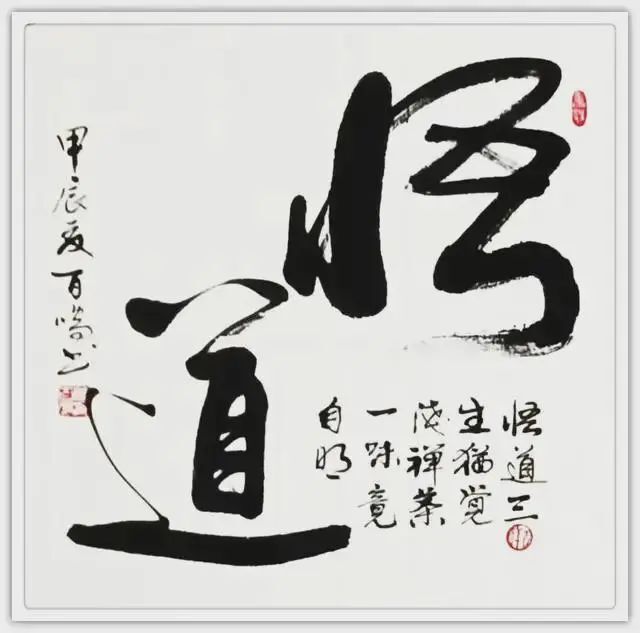 悟
道
悟道三
生猶觉
浅禅茶
一味竟
自明
甲辰夏百 书